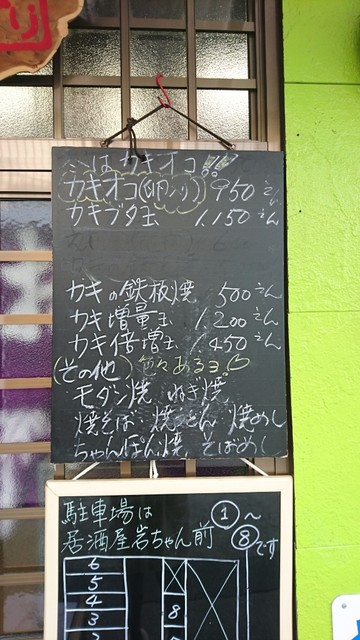 今はカキオコ!!
カキオコ(卵入り) 950えん
カキブタ玉 1,150えん
カキの鉄板焼 500えん
カキ増量玉 1,200えん
カキ倍増玉 1,450えん
(その他) 色々あるヨ!
モダン焼 ねぎ焼
焼そば 焼うどん 焼めし
ちゃんぽん焼 そばめし
駐車場は ①〜
居酒屋岩ちゃん前 ⑧です
6
5
4 8
3